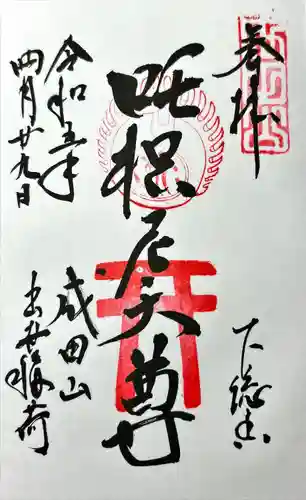 奉拝
下総国
咤枳尼天尊
令和五年
四月廿九日
成田山
出世稲荷